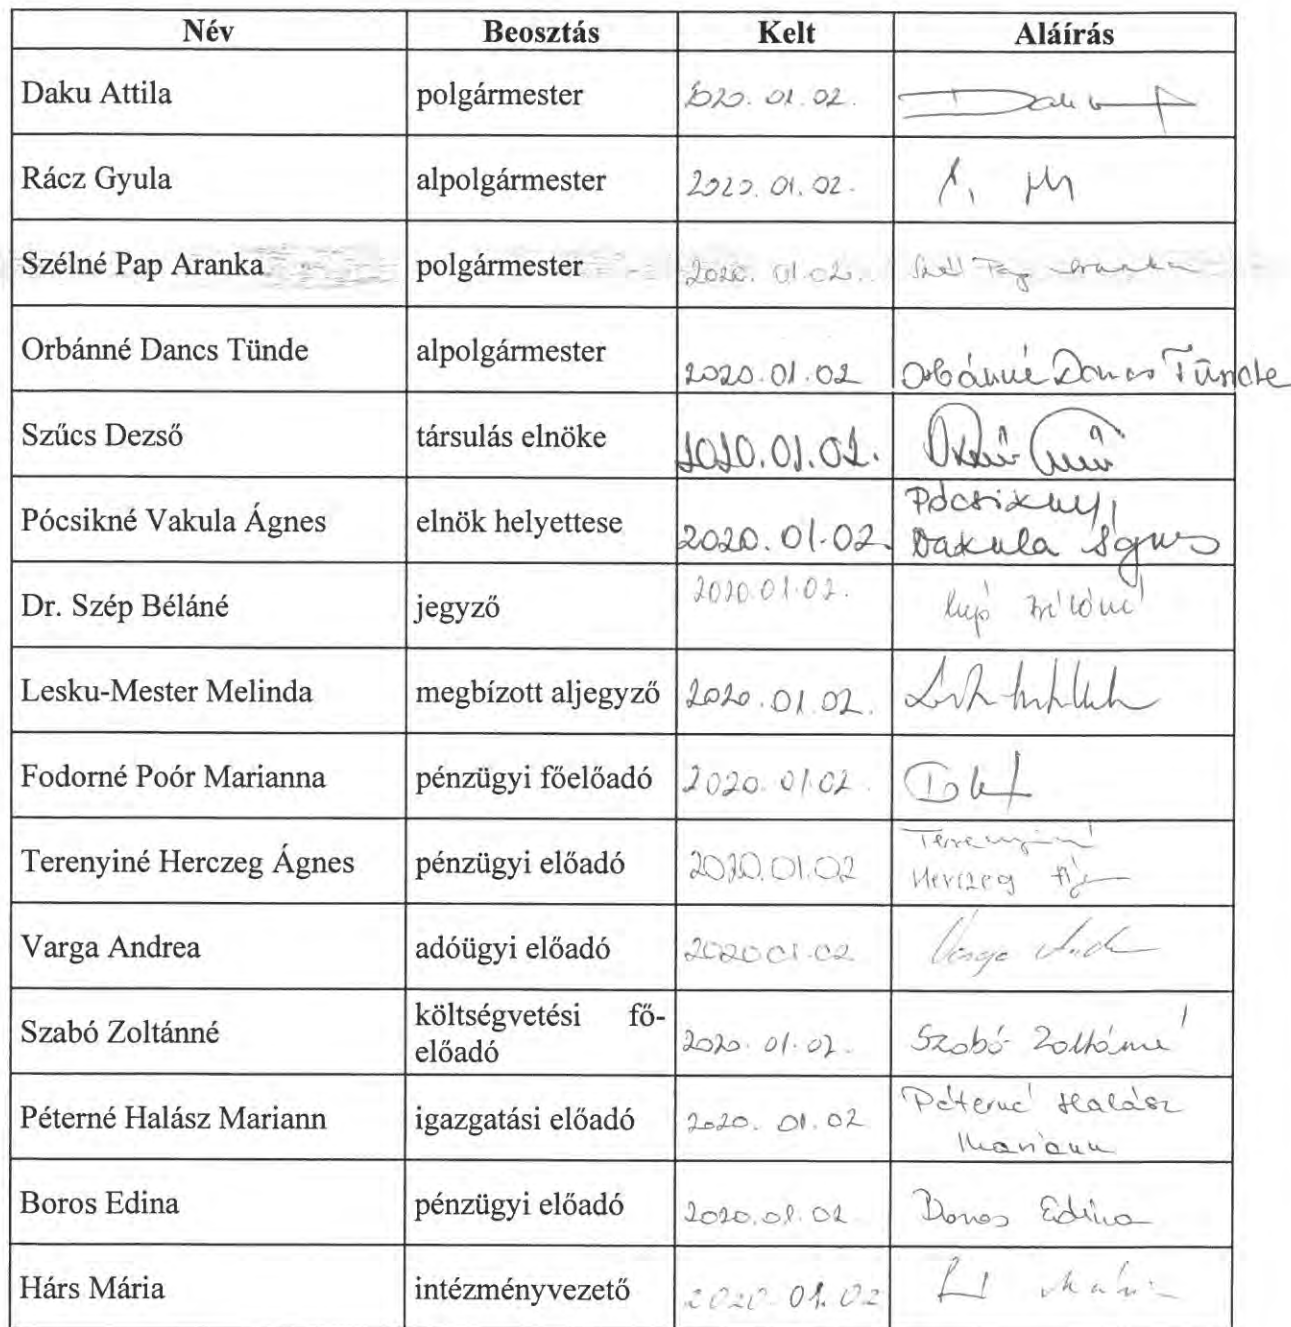 Név Beosztás Kelt Aláírás
Daku Attila polgármester 2020. 01. 02.
Rácz Gyula alpolgármester 2020. 01. 02.
Szélné Pap Aranka polgármester 2020. 01. 02.
Orbánné Dancs Tünde alpolgármester 2020. 01. 02 Orbánné Dancs Tünde
Szűcs Dezső társulás elnöke 2020. 01. 02.
Pócsikné Vakula Ágnes elnök helyettese 2020. 01. 02. Pócsikné
Vakula Ágnes
Dr. Szép Béláné jegyző 2020.01.02.
Lesku-Mester Melinda megbízott aljegyző 2020. 01. 02.
Fodorné Poór Marianna pénzügyi főelőadó 2020. 01. 02.
Terenyiné
Terenyiné Herczeg Ágnes pénzügyi előadó 2020.01.02 Herczeg
Varga Andrea adóügyi előadó 2020 01.02 Varga
költségvetési fő-
Szabó Zoltánné előadó 2020. 01. 02. Szabó Zoltánné
Péterné Halász Mariann igazgatási előadó 2020. 01. 02 Péterné Halász
Mariann
Boros Edina pénzügyi előadó 2020. 01. 02 Boros Edina
Hárs Mária intézményvezető 2020. 01. 02